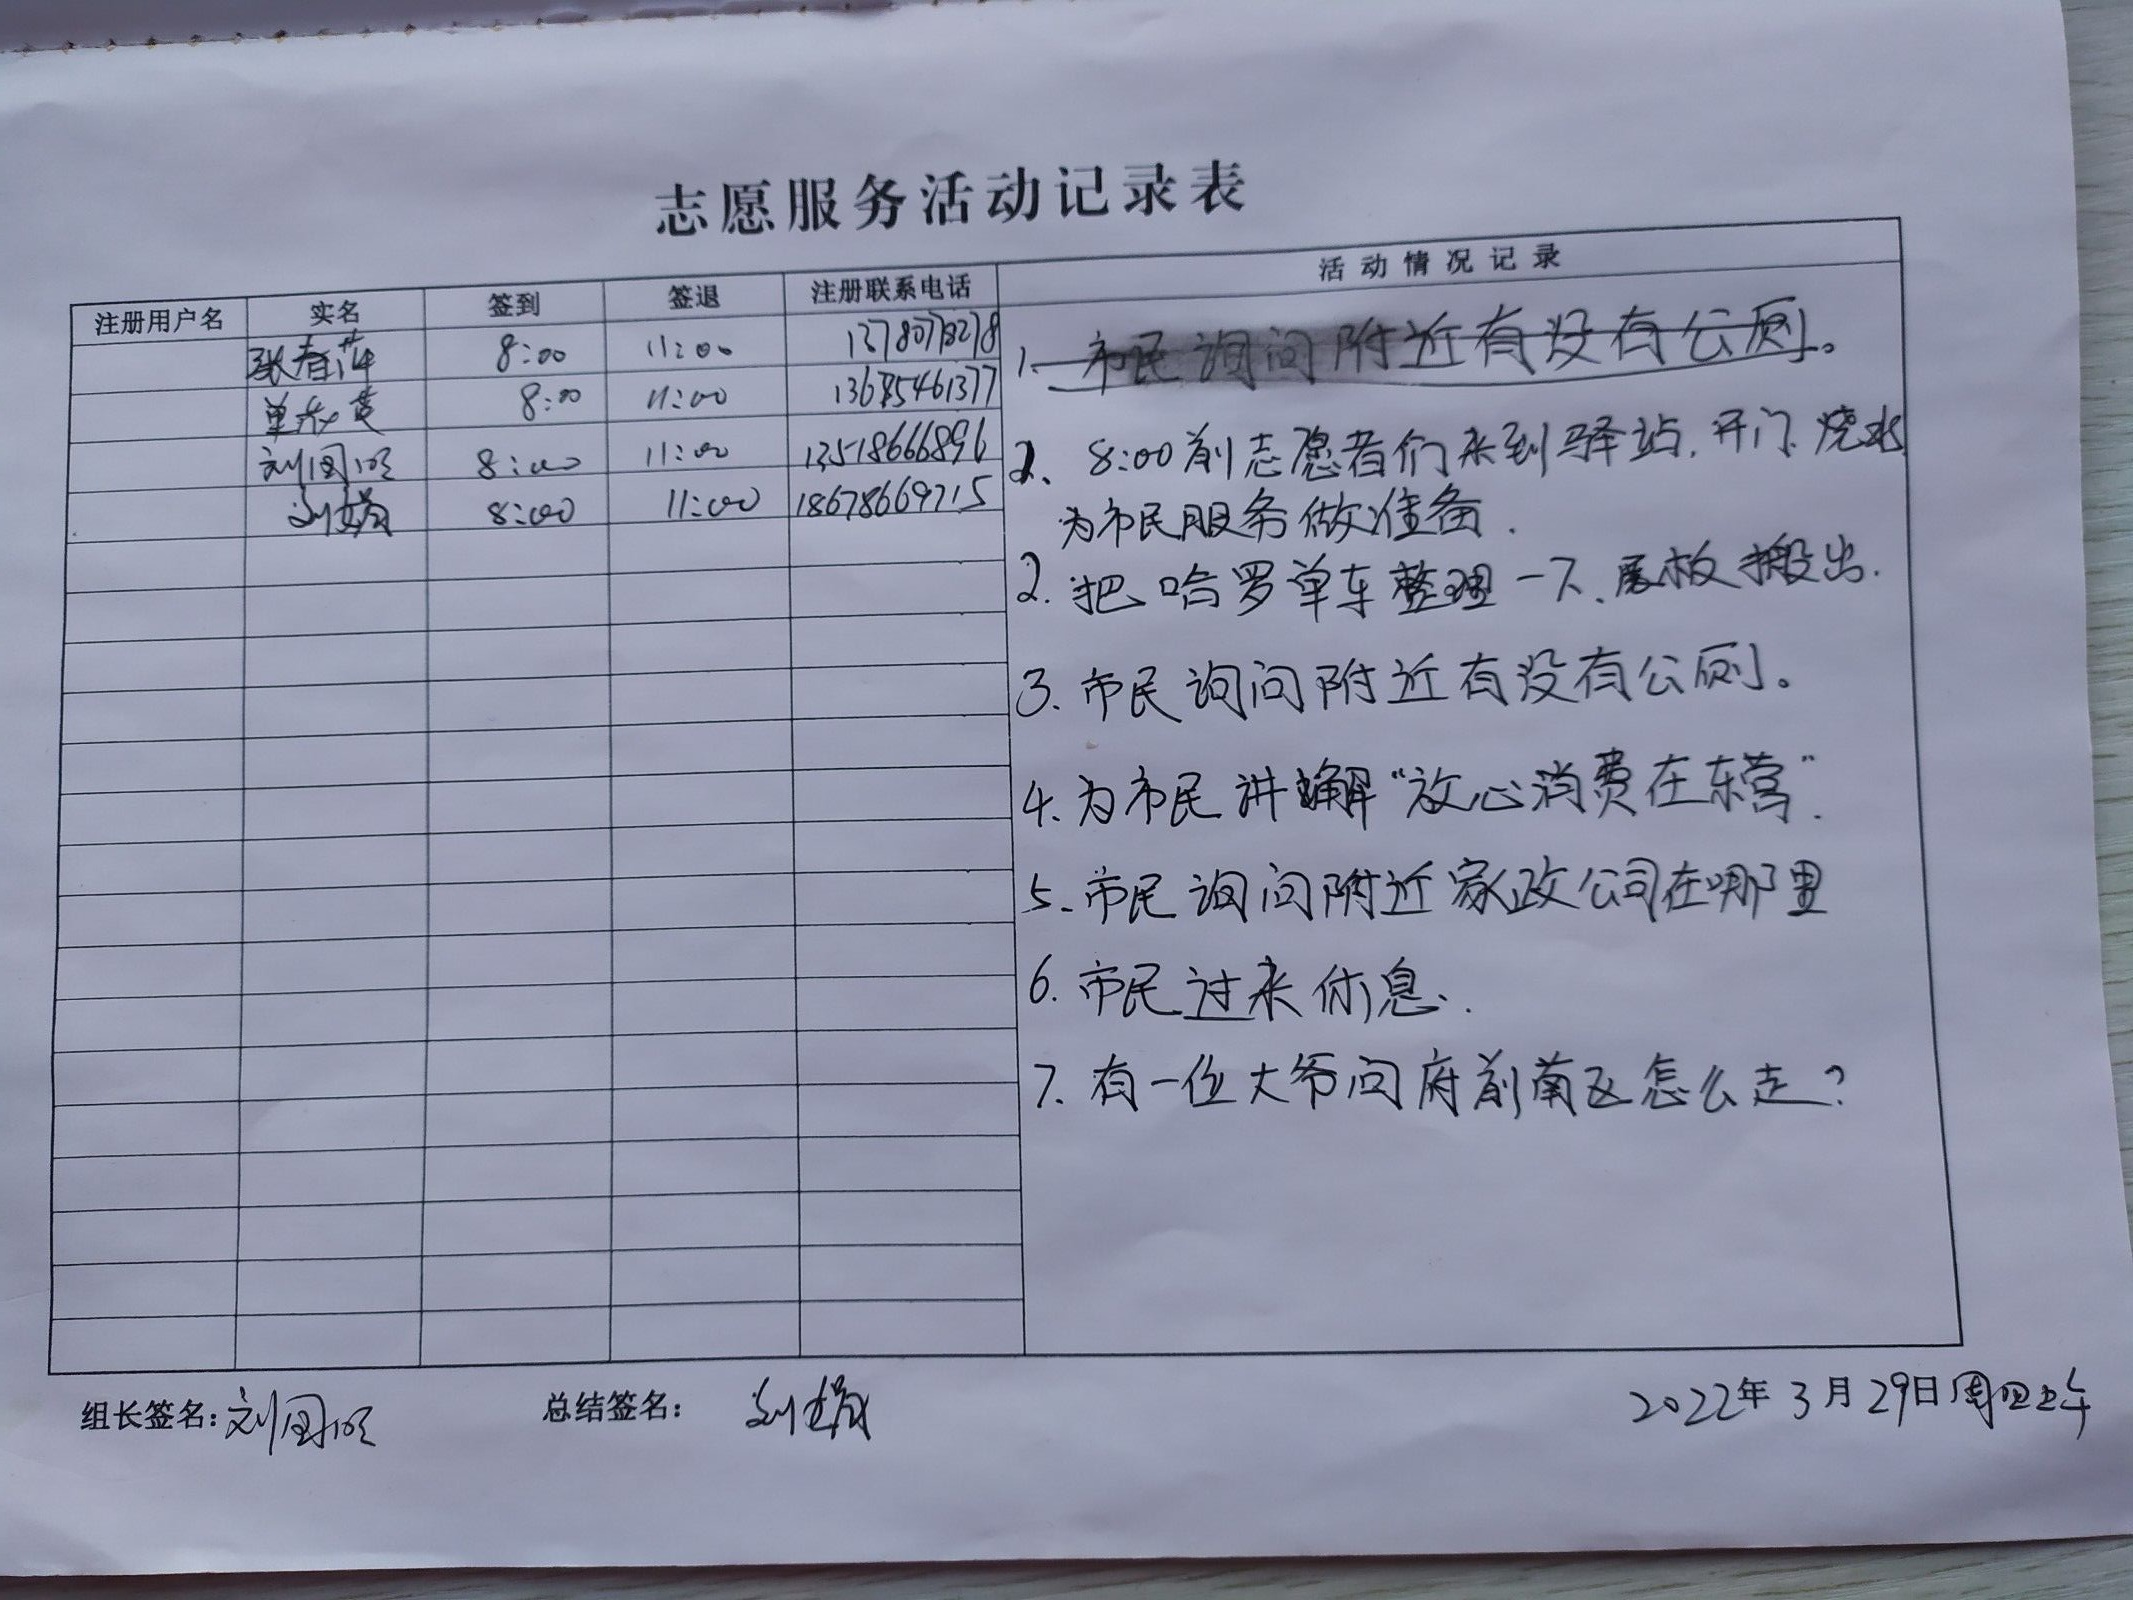 志愿服务活动记录表
注册用户名 实名 签到 签退 注册联系电话 活动情况记录
张春萍 8:00 11:00
单 8:00 11:00 13685461377
刘国明 8:00 11:00 13518666896
刘娟 8:00 11:00 18678669715
1. 市民询问附近有没有公厕。
2. 8:00前志愿者们来到驿站,开门、烧水
为市民服务做准备.
2. 把哈罗单车整理一下、展板搬出.
3. 市民询问附近有没有公厕。
4. 为市民讲解“放心消费在东营”.
5. 市民询问附近家政公司在哪里
6. 市民过来休息.
7. 有一位大爷问府前南区怎么走?
组长签名:刘国明 总结签名: 刘娟 2022年3月29日周四上午